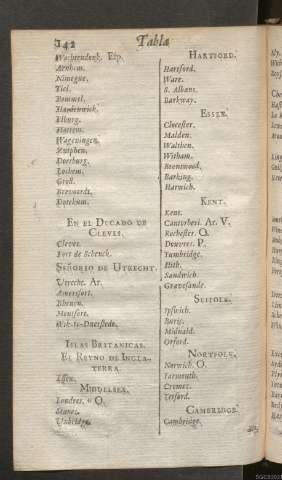 142 Tabla
Wachtendonk, Esp.
Arnhem.
Nimegue.
Tiel.
Bommel.
Harderwick.
Elburg.
Hattem.
Wageningen.
Zutphen.
Doesburg.
Lochem.
Groll.
Brevoordt.
Dotekum.
EN EL DUCADO DE
CLEVES.
Cleves.
Fort de Schenck.
SEÑORIO DE UTRECHT.
Utrecht. Ar.
Amersfort.
Rhenen.
Montfort.
Wik-te-Duerstede.
ISLAS BRITANICAS.
EL REYNO DE INGLA-
TERRA.
MIDDELSEX.
Londres. O
Stanes.
Uxbridge.
HARTFORD.
Hartford.
Ware.
S. Albans.
Barkway.
ESSEX.
Clocester.
Maldon.
Walthen.
Witham.
Brentwood.
Barking.
Harwich.
KENT.
Kent.
Canterberi. Ar. V.
Rochester. O.
Douvres. P.
Tumbridge.
Hith.
Sandwich.
Gravesande.
SUFFOLK.
Ipswich.
Buris.
Midnald.
Orford.
NORTFOLK.
Norwich. O.
Yarmouth.
Cromer.
Tetford.
CAMBRIDGE.
Cambridge.